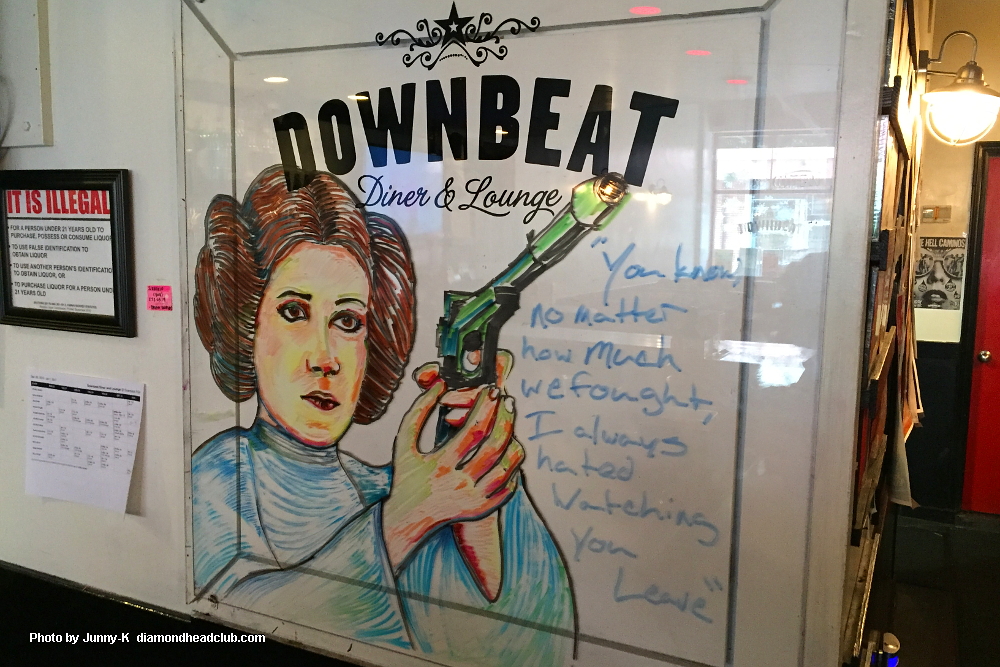 DOWNBEAT
Diner & Lounge
"You know,
no matter
how much
we fought,
I always
hated
Watching
You
Leave"
IT IS ILLEGAL
FOR A PERSON UNDER 21 YEARS OLD TO
PURCHASE, POSSESS OR CONSUME LIQUOR
TO USE FALSE IDENTIFICATION TO
OBTAIN LIQUOR
TO USE ANOTHER PERSON'S IDENTIFICATIO
TO OBTAIN LIQUOR, OR
TO PURCHASE LIQUOR FOR A PERSON UNDER
21 YEARS OLD
E HELL CAMINOS
Photo by Junny-K diamondheadclub.com